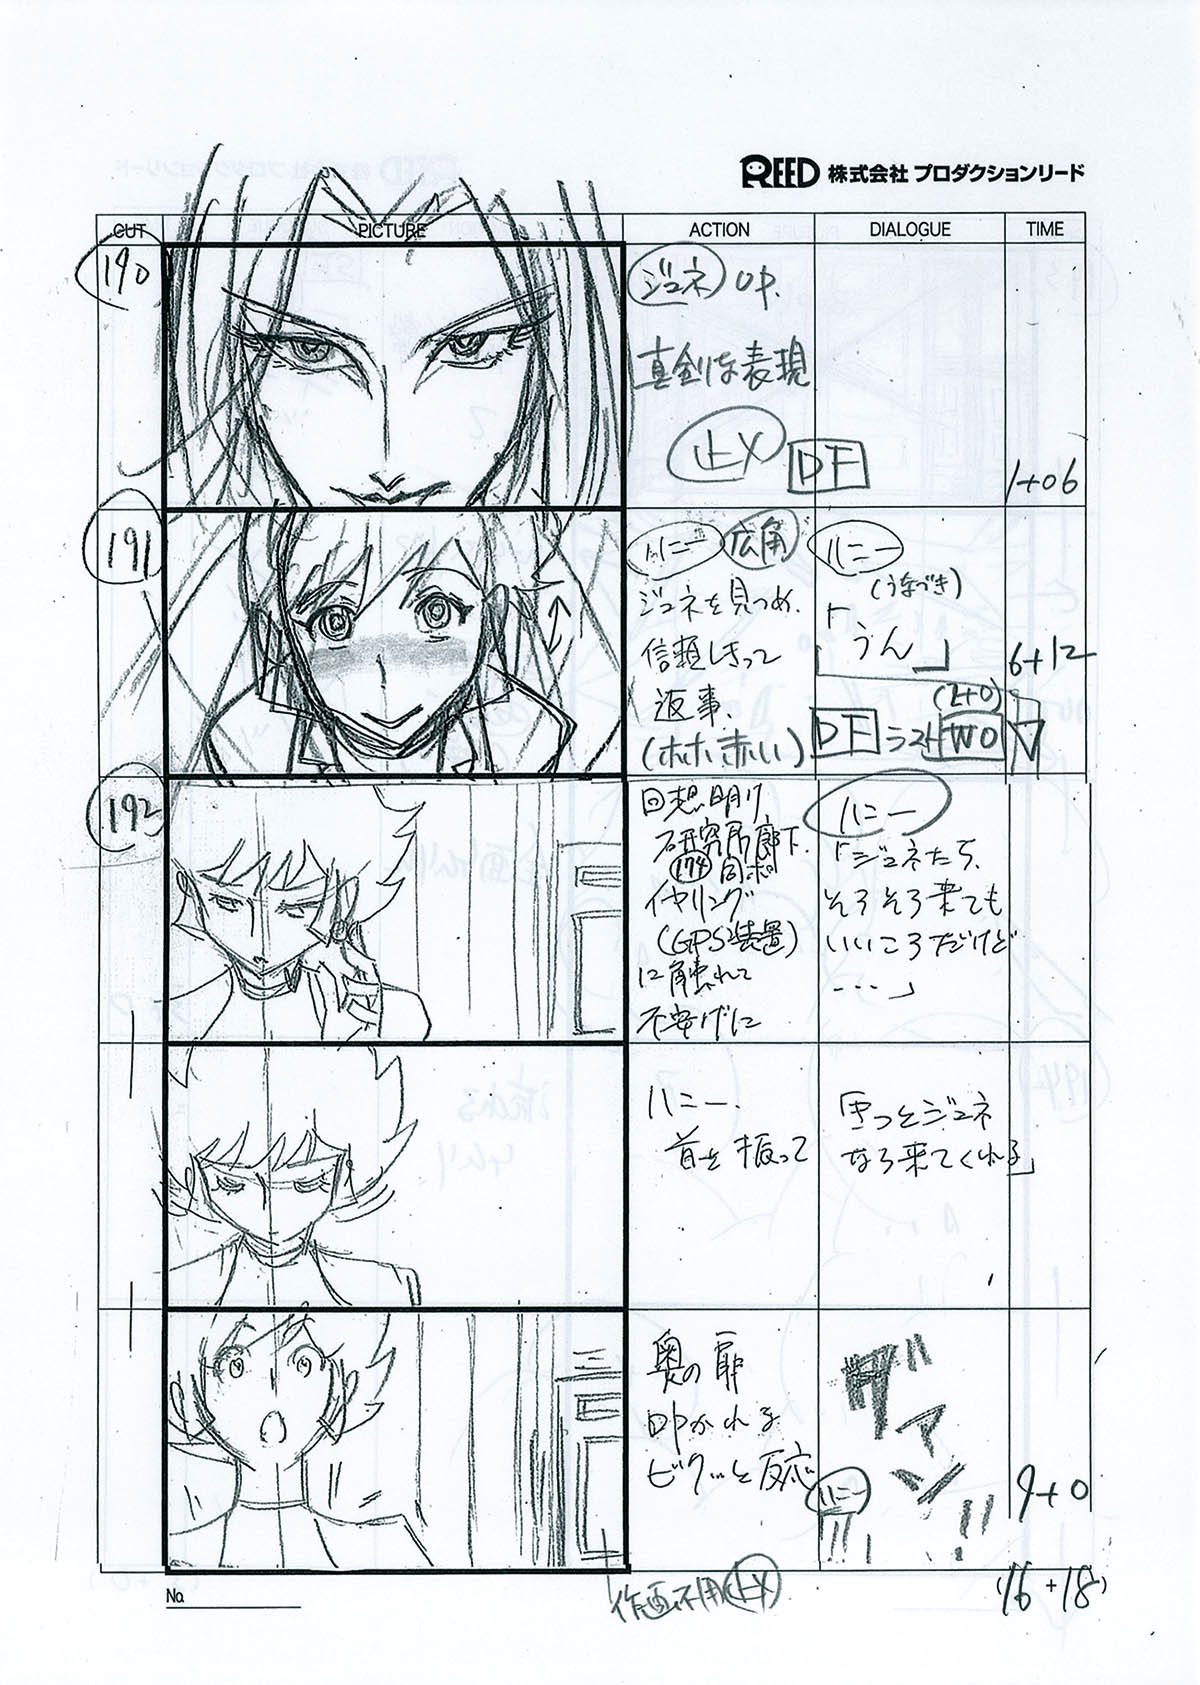 REED 株式会社 プロダクションリード
CUT PICTURE ACTION DIALOGUE TIME
190
ジュネ UP.
真剣な表現
止メ DF
1+06
191
ハニー 広角
ジュネを見つめ、
信頼しきって
返事、
(ホホ赤い)
ハニー
(うなづき)
「うん」
6+12
(2+0)
DF ラスト WO
192
回想明け
研究所廊下、
174 同ポ
イヤリング
(GPS装置)
に触れて
不安げに
ハニー
「ジュネたち、
そろそろ来ても
いいころだけど
・・・」
ハニー、
首を振って
「きっとジュネ
なら来てくれる」
奥の扉
叩かれる
ビクッと反応
ダァン!!
ハニー
!!
9+0
No.
作画不用 止メ
(16+18)